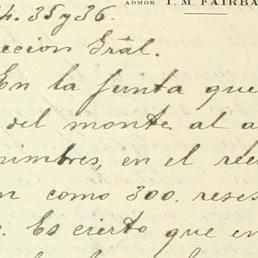 ADMOR. T. M. FAIRBA
4. 35 y 36.
eccion Gral.
En la junta que
del monte al a
uimbres, en el rec
n como 300. reses
. Es cierto que en